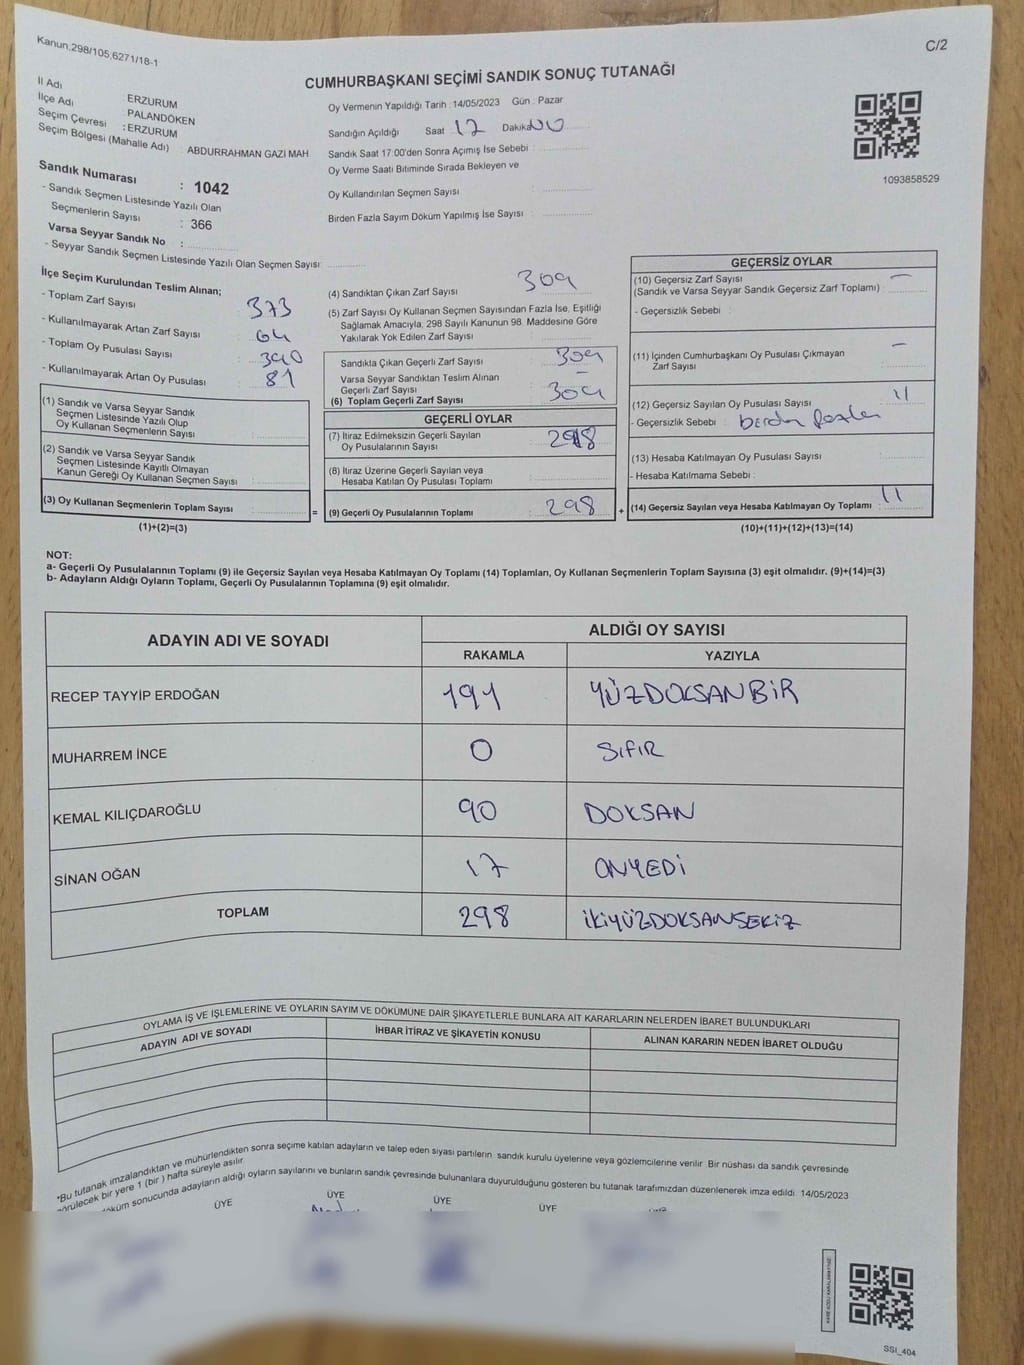 Kanun,298/105,6271/18-1
C/2
CUMHURBAŞKANI SEÇİMİ SANDIK SONUÇ TUTANAĞI
İl Adı : ERZURUM
İlçe Adı : PALANDÖKEN
Seçim Çevresi : ERZURUM
Seçim Bölgesi (Mahalle Adı) : ABDURRAHMAN GAZI MAH
Sandık Numarası : 1042
- Sandık Seçmen Listesinde Yazılı Olan
Seçmenlerin Sayısı : 366
Varsa Seyyar Sandık No :
- Seyyar Sandık Seçmen Listesinde Yazılı Olan Seçmen Sayısı:
Oy Vermenin Yapıldığı Tarih : 14/05/2023 Gün : Pazar
Sandığın Açıldığı Saat 17 Dakika 00
Sandık Saat 17:00'den Sonra Açımış İse Sebebi :
Oy Verme Saati Bitiminde Sırada Bekleyen ve
Oy Kullandırılan Seçmen Sayısı :
Birden Fazla Sayım Döküm Yapılmış İse Sayısı :
1093858529
İlçe Seçim Kurulundan Teslim Alınan;
- Toplam Zarf Sayısı : 373
- Kullanılmayarak Artan Zarf Sayısı : 64
- Toplam Oy Pusulası Sayısı : 390
- Kullanılmayarak Artan Oy Pusulası : 81
(1) Sandık ve Varsa Seyyar Sandık
Seçmen Listesinde Yazılı Olup
Oy Kullanan Seçmenlerin Sayısı :
(2) Sandık ve Varsa Seyyar Sandık
Seçmen Listesinde Kayıtlı Olmayan
Kanun Gereği Oy Kullanan Seçmen Sayısı :
(3) Oy Kullanan Seçmenlerin Toplam Sayısı :
(1)+(2)=(3)
(4) Sandıktan Çıkan Zarf Sayısı : 309
(5) Zarf Sayısı Oy Kullanan Seçmen Sayısından Fazla İse, Eşitliği
Sağlamak Amacıyla, 298 Sayılı Kanunun 98. Maddesine Göre
Yakılarak Yok Edilen Zarf Sayısı :
Sandıkta Çıkan Geçerli Zarf Sayısı : 309
Varsa Seyyar Sandıktan Teslim Alınan
Geçerli Zarf Sayısı : -
(6) Toplam Geçerli Zarf Sayısı : 309
GEÇERLİ OYLAR
(7) İtiraz Edilmeksizin Geçerli Sayılan
Oy Pusulalarının Sayısı : 298
(8) İtiraz Üzerine Geçerli Sayılan veya
Hesaba Katılan Oy Pusulası Toplamı :
= (9) Geçerli Oy Pusulalarının Toplamı : 298 +
GEÇERSİZ OYLAR
(10) Geçersiz Zarf Sayısı
(Sandık ve Varsa Seyyar Sandık Geçersiz Zarf Toplamı) : -
- Geçersizlik Sebebi :
(11) İçinden Cumhurbaşkanı Oy Pusulası Çıkmayan
Zarf Sayısı : -
(12) Geçersiz Sayılan Oy Pusulası Sayısı : 11
- Geçersizlik Sebebi : berden fazla
(13) Hesaba Katılmayan Oy Pusulası Sayısı :
- Hesaba Katılmama Sebebi :
(14) Geçersiz Sayılan veya Hesaba Katılmayan Oy Toplamı : 11
(10)+(11)+(12)+(13)=(14)
NOT:
a- Geçerli Oy Pusulalarının Toplamı (9) ile Geçersiz Sayılan veya Hesaba Katılmayan Oy Toplamı (14) Toplamları, Oy Kullanan Seçmenlerin Toplam Sayısına (3) eşit olmalıdır. (9)+(14)=(3)
b- Adayların Aldığı Oyların Toplamı, Geçerli Oy Pusulalarının Toplamına (9) eşit olmalıdır.
ADAYIN ADI VE SOYADI
ALDIĞI OY SAYISI
RAKAMLA YAZIYLA
RECEP TAYYİP ERDOĞAN 191 YÜZDOKSANBİR
MUHARREM İNCE 0 SIFIR
KEMAL KILIÇDAROĞLU 90 DOKSAN
SİNAN OĞAN 17 ONYEDİ
TOPLAM 298 İKİYÜZDOKSANSEKİZ
OYLAMA İŞ VE İŞLEMLERİNE VE OYLARIN SAYIM VE DÖKÜMÜNE DAİR ŞİKAYETLERLE BUNLARA AİT KARARLARIN NELERDEN İBARET BULUNDUKLARI
ADAYIN ADI VE SOYADI İHBAR İTİRAZ VE ŞİKAYETİN KONUSU ALINAN KARARIN NEDEN İBARET OLDUĞU
*Bu tutanak imzalandıktan ve mühürlendikten sonra seçime katılan adayların ve talep eden siyasi partilerin sandık kurulu üyelerine veya gözlemcilerine verilir. Bir nüshası da sandık çevresinde
görülecek bir yere 1 (bir) hafta süreyle asılır.
döküm sonucunda adayların aldığı oyların sayılarını ve bunların sandık çevresinde bulunanlara duyurulduğunu gösteren bu tutanak tarafımızdan düzenlenerek imza edildi. 14/05/2023
ÜYE ÜYE ÜYE ÜYE
SSI_404